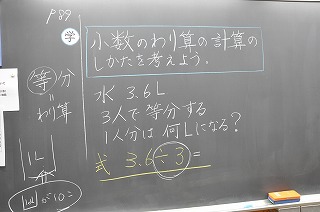 P89
学
小数のわり算の計算の
しかたを考えよう.
等分
=
わり算
水 3.6L
3人で等分する
1人分は何Lになる?
式 3.6÷3=
1L
が10こ